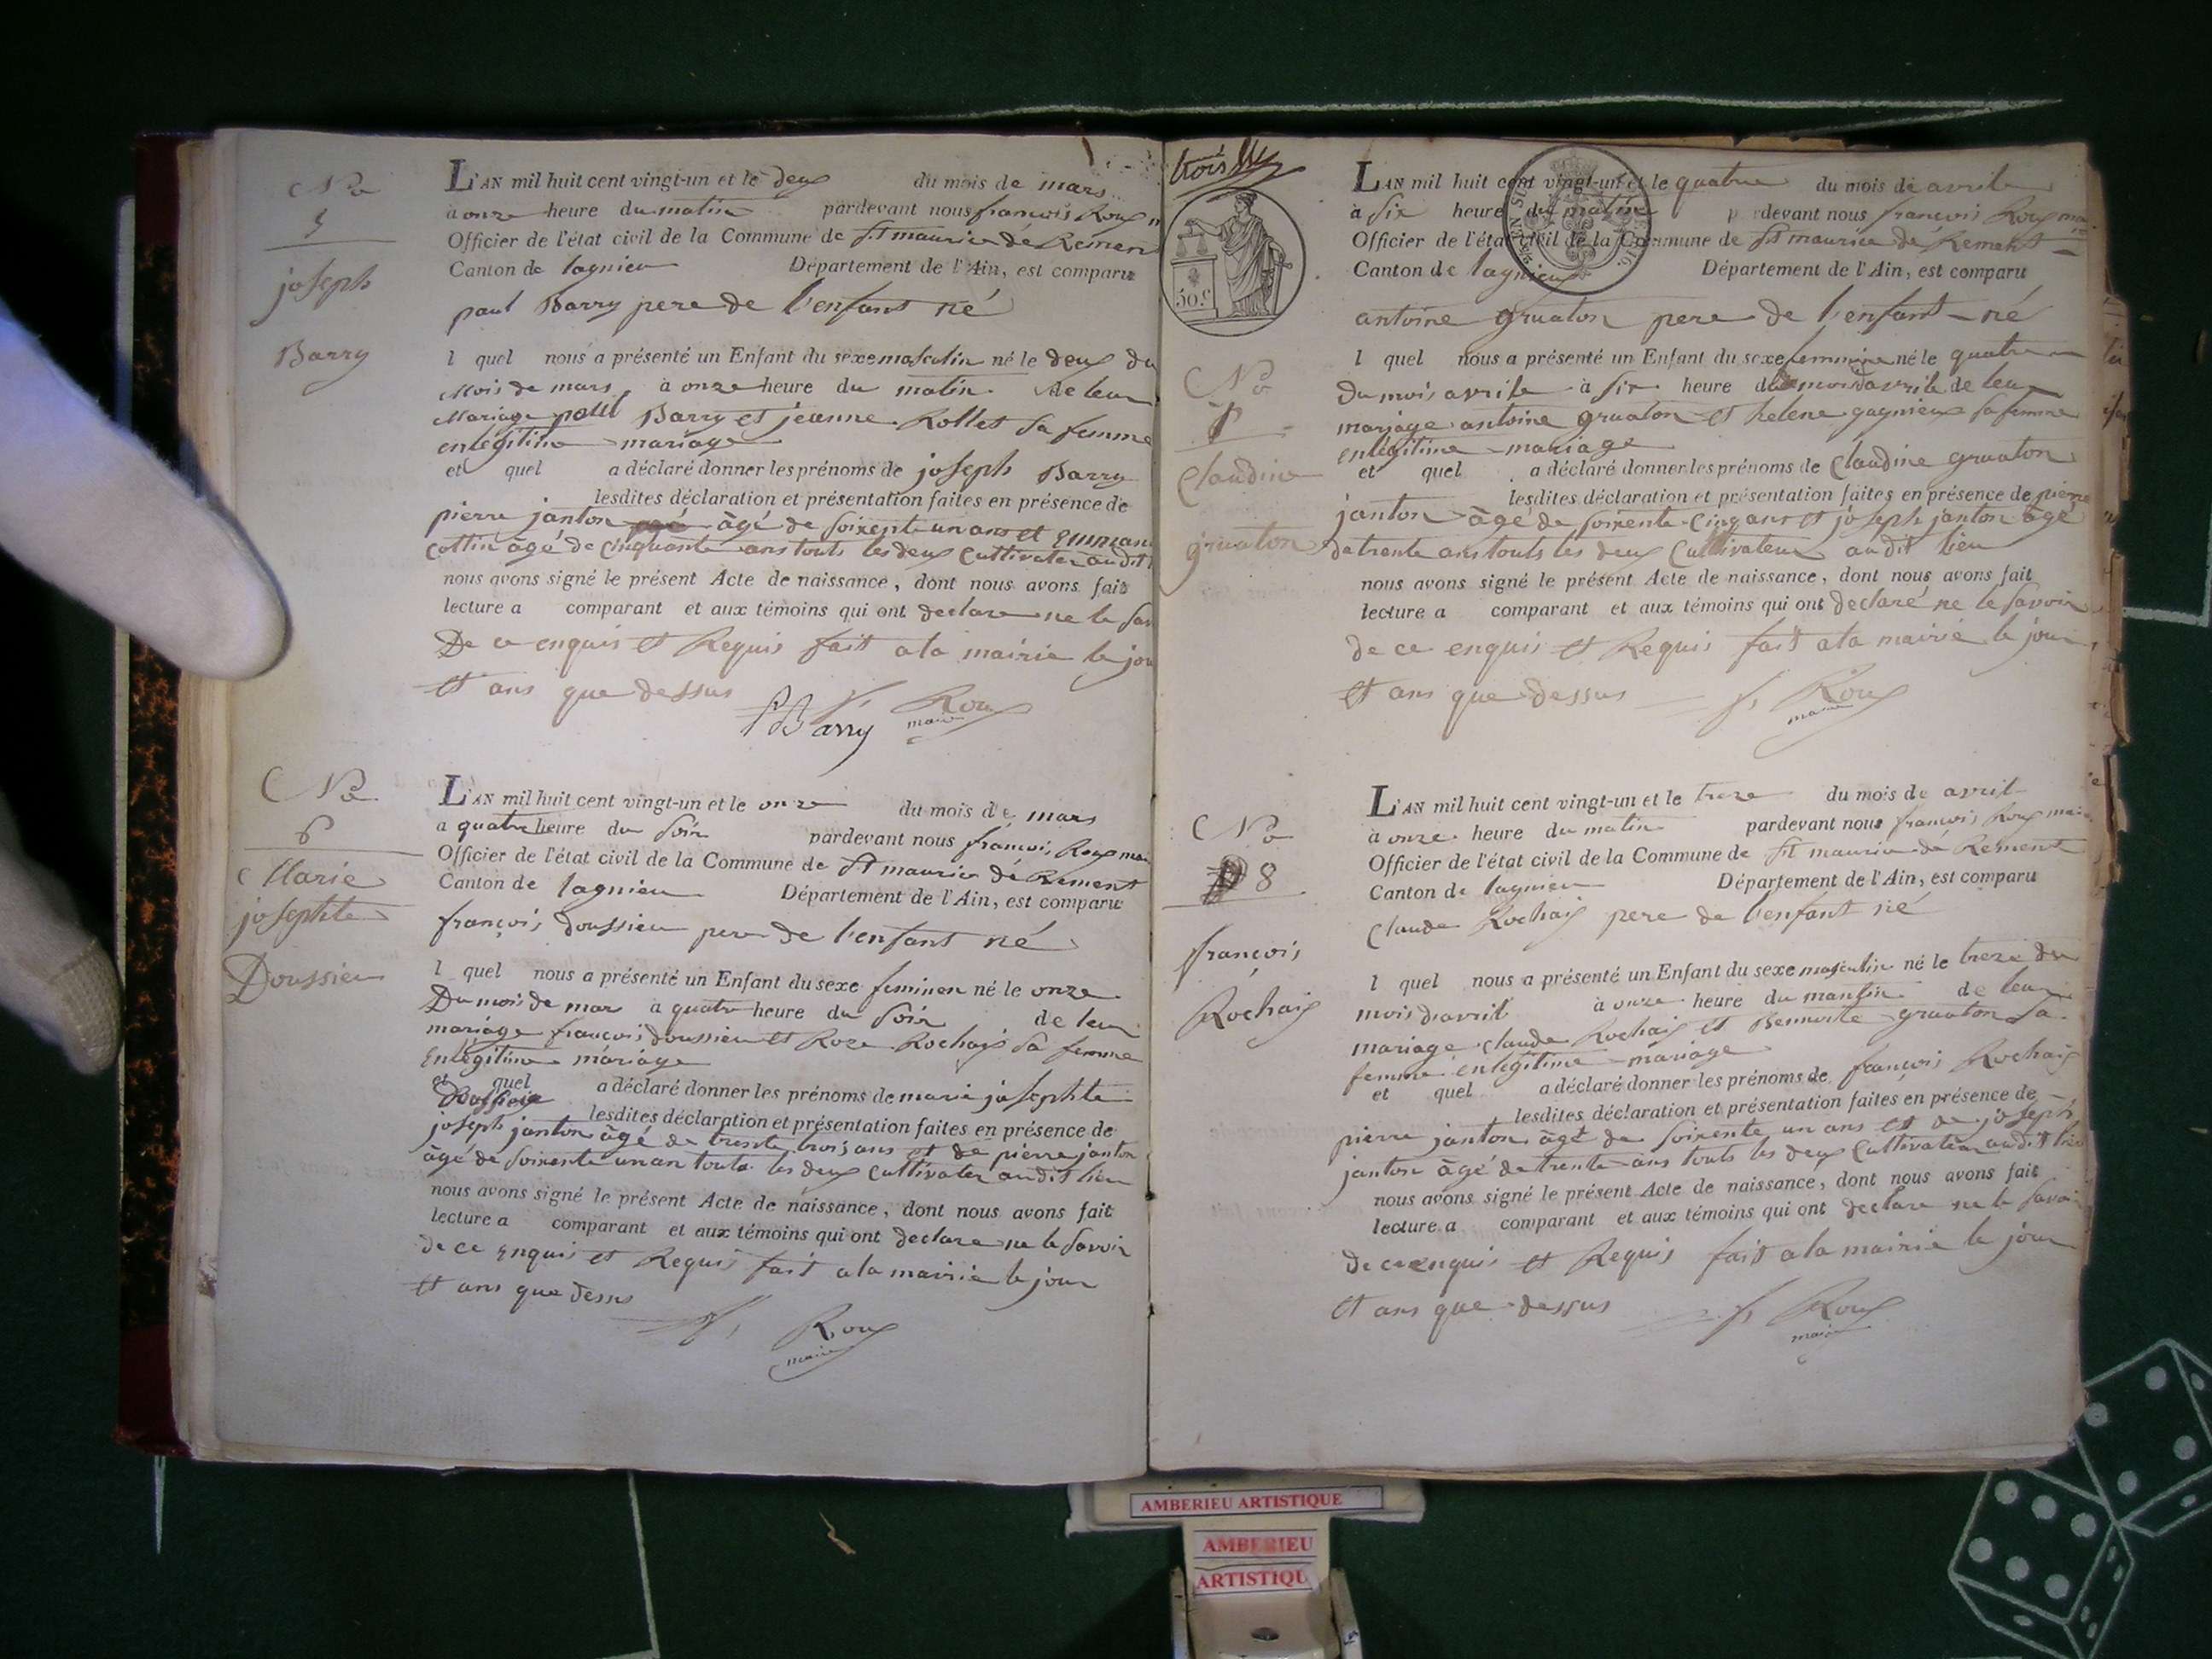 No
5
joseph
Barry
L'AN mil huit cent vingt-un et le deux du mois de mars
à onze heure du matin pardevant nous françois Roux
Officier de l'état civil de la Commune de St maurice de Remens
Canton de lagnieu Département de l'Ain, est comparu
paul Barry pere de l'enfant né
l quel nous a présenté un Enfant du sexe masculin né le deux du
Mois de mars à onze heure du matin de leur
Mariage paul Barry et jeanne Rollet sa femme
en légitime mariage
et quel a déclaré donner les prénoms de joseph Barry
lesdites déclaration et présentation faites en présence de
pierre janton âgé de soixente un ans et
Cottin âgé de cinquante ans touts les deux Cultivater audit
nous avons signé le présent Acte de naissance, dont nous avons fait
lecture a comparant et aux témoins qui ont declare ne le
De ce enquis et Requis fait a la mairie le jou
et ans que dessus
PBarry
f, Roux
maire
No
6
Marie
josephte
Doussieu
L'AN mil huit cent vingt-un et le onze du mois de mars
a quatre heure du soir pardevant nous françois Roux
Officier de l'état civil de la Commune de St maurice de Rement
Canton de lagnieu Département de l'Ain, est comparu
françois doussieu pere de l'enfant né
l quel nous a présenté un Enfant du sexe feminen né le onze
Du mois de mar a quatre heure du soir de leur
mariage françois doussieu et Roze Rochaix sa femme
En légitime mariage
et quel a déclaré donner les prénoms de marie josephte
lesdites déclaration et présentation faites en présence de
joseph janton âgé de trente trois ans et de pierre janton
âgé de soixente un an touts les deux Cultivater audit lieu
nous avons signé le présent Acte de naissance, dont nous avons fait
lecture a comparant et aux témoins qui ont declare ne le savoir
de ce Enquis et Requis fait a la mairie le jour
et ans que dessus
f, Roux
maire
50 c
No
Claudine
gruaton
L'AN mil huit cent vingt-un et le quatre du mois de avrile
à six heure du matin pardevant nous françois Roux
Officier de l'état civil de la Commune de St maurice de Remens
Canton de lagnieu Département de l'Ain, est comparu
antoine gruaton pere de l'enfant né
l quel nous a présenté un Enfant du sexe femmine né le quatre
Du mois avrile à six heure du mois davrile de leur
mariage antoine gruaton et helene gagnieux sa femme
en légitime mariage
et quel a déclaré donner les prénoms de Claudine gruaton
lesdites déclaration et présentation faites en présence de pierre
janton âgé de soixente Cinq ans et joseph janton âgé
de trente ans touts les deux Cultivateur audit lieu
nous avons signé le présent Acte de naissance, dont nous avons fait
lecture a comparant et aux témoins qui ont declaré ne le savoir
de ce enquis et Requis fait a la mairie le jour
et ans que dessus
f, Roux
maire
No
8
françois
Rochaix
L'AN mil huit cent vingt-un et le treze du mois de avril
à onze heure du matin pardevant nous françois Roux
Officier de l'état civil de la Commune de St maurice de Rement
Canton de lagnieu Département de l'Ain, est comparu
Claude Rochaix pere de l'enfant né
l quel nous a présenté un Enfant du sexe masculin né le treze du
mois d'avril à onze heure du mantin de leur
mariage Claude Rochaix et Bennoite gruaton sa
femme en légitime mariage
et quel a déclaré donner les prénoms de françois Rochaix
lesdites déclaration et présentation faites en présence de
pierre janton âgé de soixente un ans et de joseph
janton âgé de trente ans touts les deux Cultivateur audit lieu
nous avons signé le présent Acte de naissance, dont nous avons fait
lecture a comparant et aux témoins qui ont declare ne le savoir
de ce enquis et Requis fait a la mairie le jour
et ans que dessus
f, Roux
maire
AMBERIEU ARTISTIQUE
AMBERIEU
ARTISTIQU